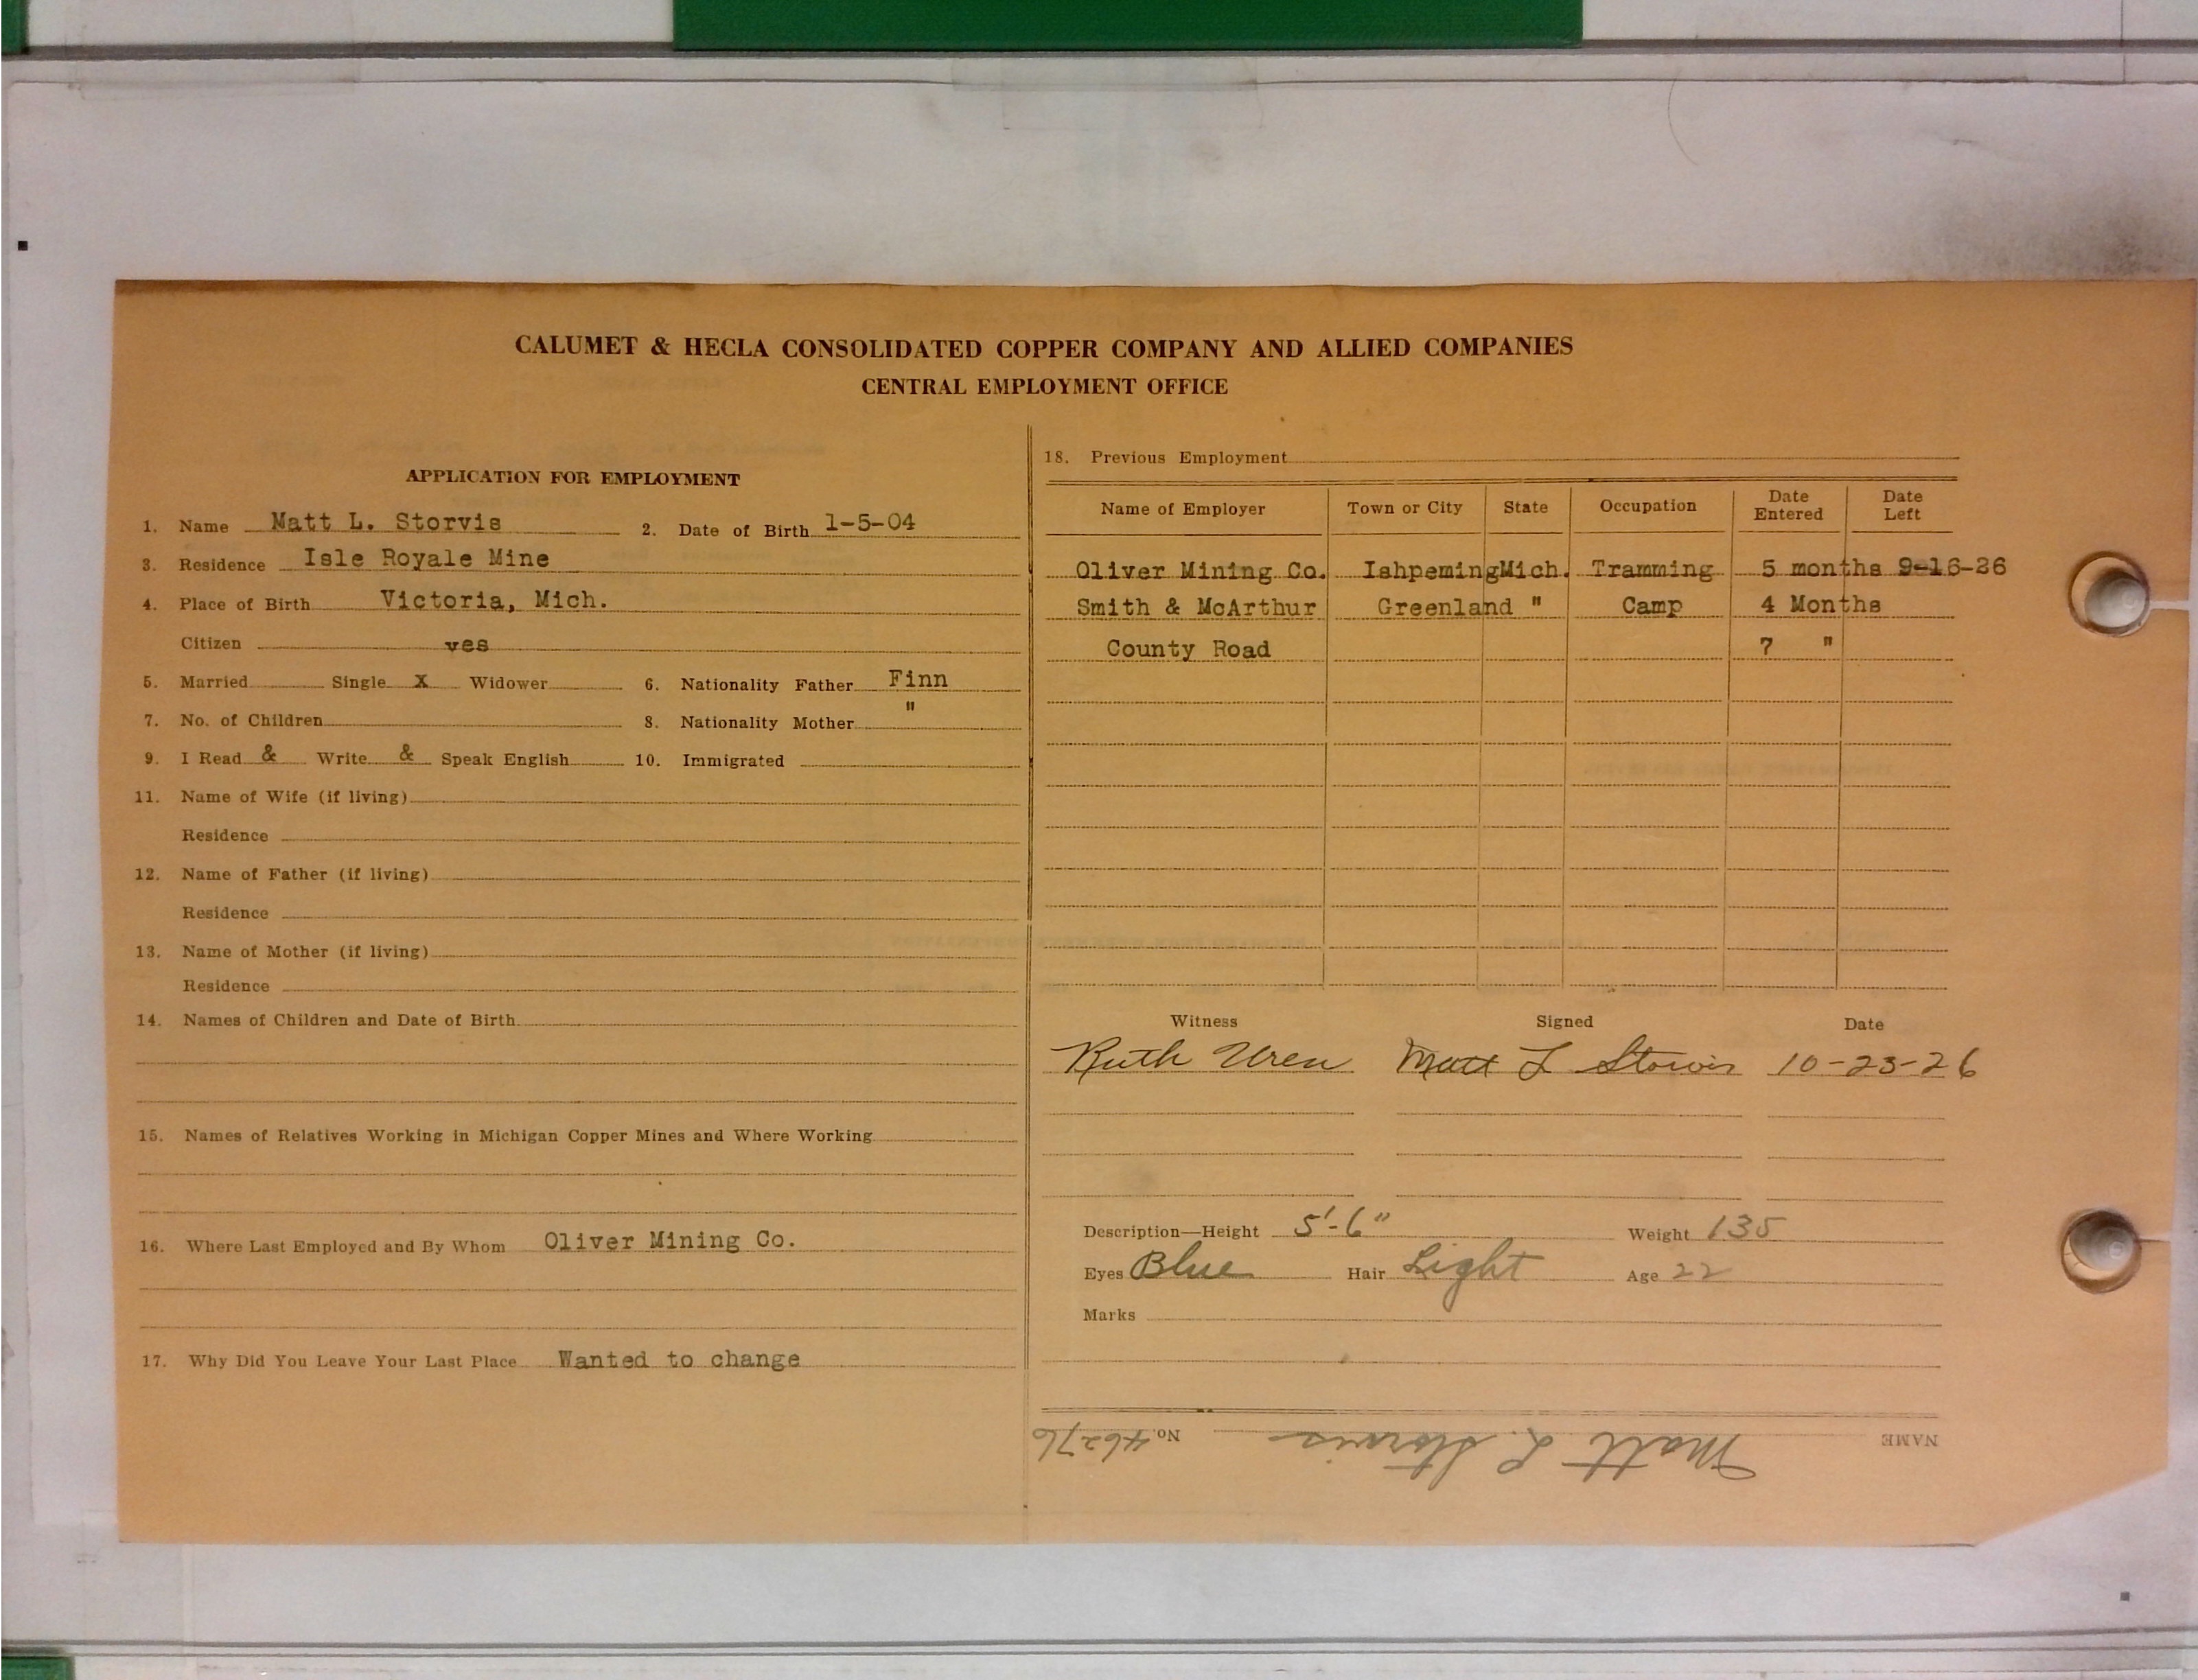 CALUMET & HECLA CONSOLIDATED COPPER COMPANY AND ALLIED COMPANIES
CENTRAL EMPLOYMENT OFFICE
APPLICATION FOR EMPLOYMENT
1. Name Matt L. Storvis 2. Date of Birth 1-5-04
3. Residence Isle Royale Mine
4. Place of Birth Victoria, Mich.
Citizen yes
5. Married Single X Widower 6. Nationality Father Finn
7. No. of Children 8. Nationality Mother "
9. I Read & Write & Speak English 10. Immigrated
11. Name of Wife (if living)
Residence
12. Name of Father (if living)
Residence
13. Name of Mother (if living)
Residence
14. Names of Children and Date of Birth
15. Names of Relatives Working in Michigan Copper Mines and Where Working
16. Where Last Employed and By Whom Oliver Mining Co.
17. Why Did You Leave Your Last Place Wanted to change
18. Previous Employment
Name of Employer Town or City State Occupation Date Entered Date Left
Oliver Mining Co. Ishpeming Mich. Tramming 5 months 9-16-26
Smith & McArthur Greenland " Camp 4 Months
County Road 7 "
Witness Signed Date
Ruth Uren Matt L Storvis 10-23-26
Description—Height 5'-6" Weight 135
Eyes Blue Hair Light Age 22
Marks
NAME Matt L. Storvis No. 46276